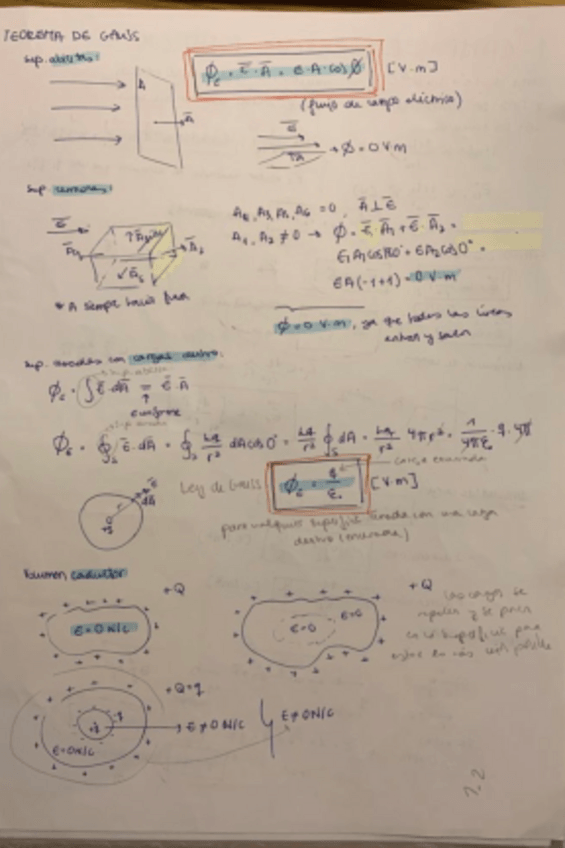 TEOREMA DE GAUSS
Sup. abiertas:
ϕ_E = E̅ · A̅ = E · A · cos ϕ [V·m]
A
(flujo de campo eléctrico)
A̅
E̅
→ ϕ = 0 V·m
Sup. cerradas:
E̅
A̅₁
A̅₂
* A siempre hacia fuera
A₁, A₂ ≠ 0 → ϕ = E̅ · A̅₁ + E̅ · A̅₂ =
E₁A₁cos180° + EA₂cos0° =
EA(-1+1) = 0 V·m
ϕ = 0 V·m, ya que todas las líneas
entran y salen
Sup. cerradas con cargas dentro:
Sup. abierta
ϕ_E = ∫ E̅ · dA̅ = E̅ · A̅
E uniforme
Sup. cerrada
ϕ_E = ∮_S E̅ · dA̅ = ∮_S kq/r² dA cos0° = kq/r² ∮_S dA = kq/r² 4πr² = 1/4πε₀ · q · 4π
carga encerrada
Ley de Gauss ϕ_E = q/ε₀ [V·m]
r
dA̅
+q
para cualquier superficie cerrada con una carga
dentro (encerrada)
Volumen conductor
+Q
E=0 N/C
+Q
E=0
E=0
las cargas se
repelen y se ponen
en la superficie para
estar lo más lejos posible
+Q+q
-q
+q
E≠0 N/C
E≠0 N/C
E=0 N/C
2.2